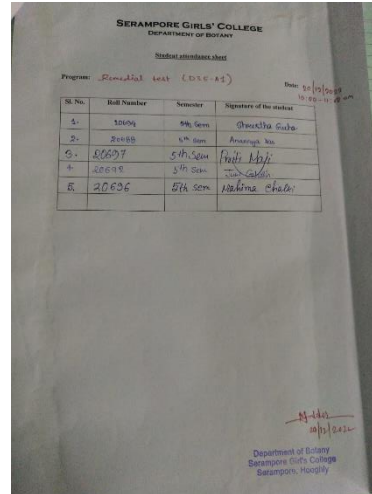 SERAMPORE GIRLS' COLLEGE
DEPARTMENT OF BOTANY
Student attendance sheet
Program: Remedial test (DSE-A1)
Date: 20/12/2022
Sl. No. Roll Number Semester Signature of the student
1. 20694 5th Sem Shrestha
2. 20688 5th Sem Ananya
3. 20697 5th Sem Priti Maji
4. 20695 5th Sem
5. 20696 5th Sem Mahima
20/12/2022
Department of Botany
Serampore Girl's College
Serampore, Hooghly